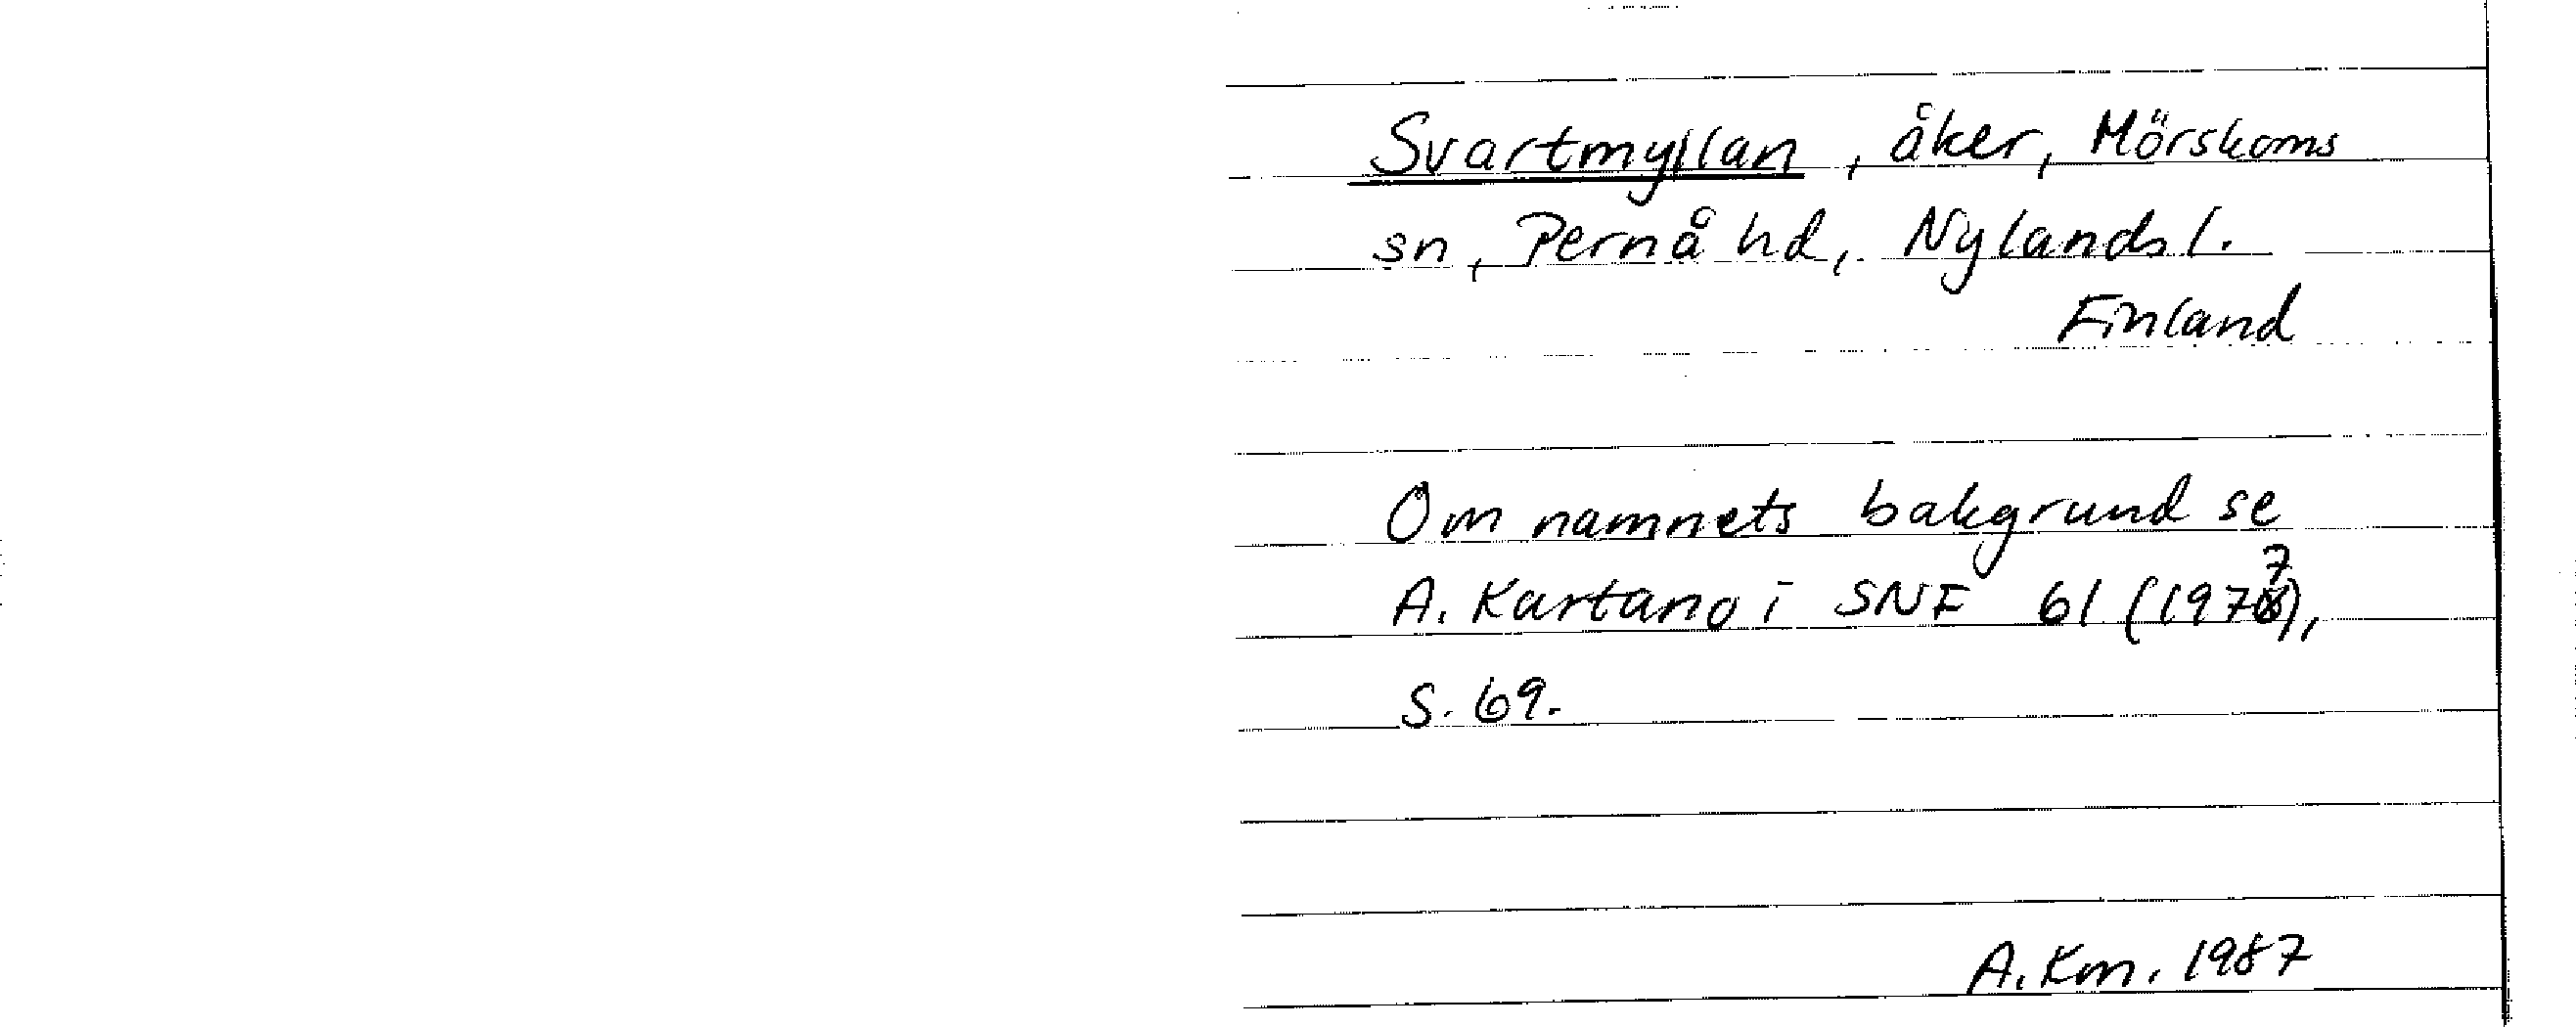 Svartmyllan, åker, Mörskoms
sn, Pernå hd, Nylands l.
Finland
Om namnets bakgrund se
A. Kartano i SNF 61 (1977),
s. 69.
A. Km. 1987